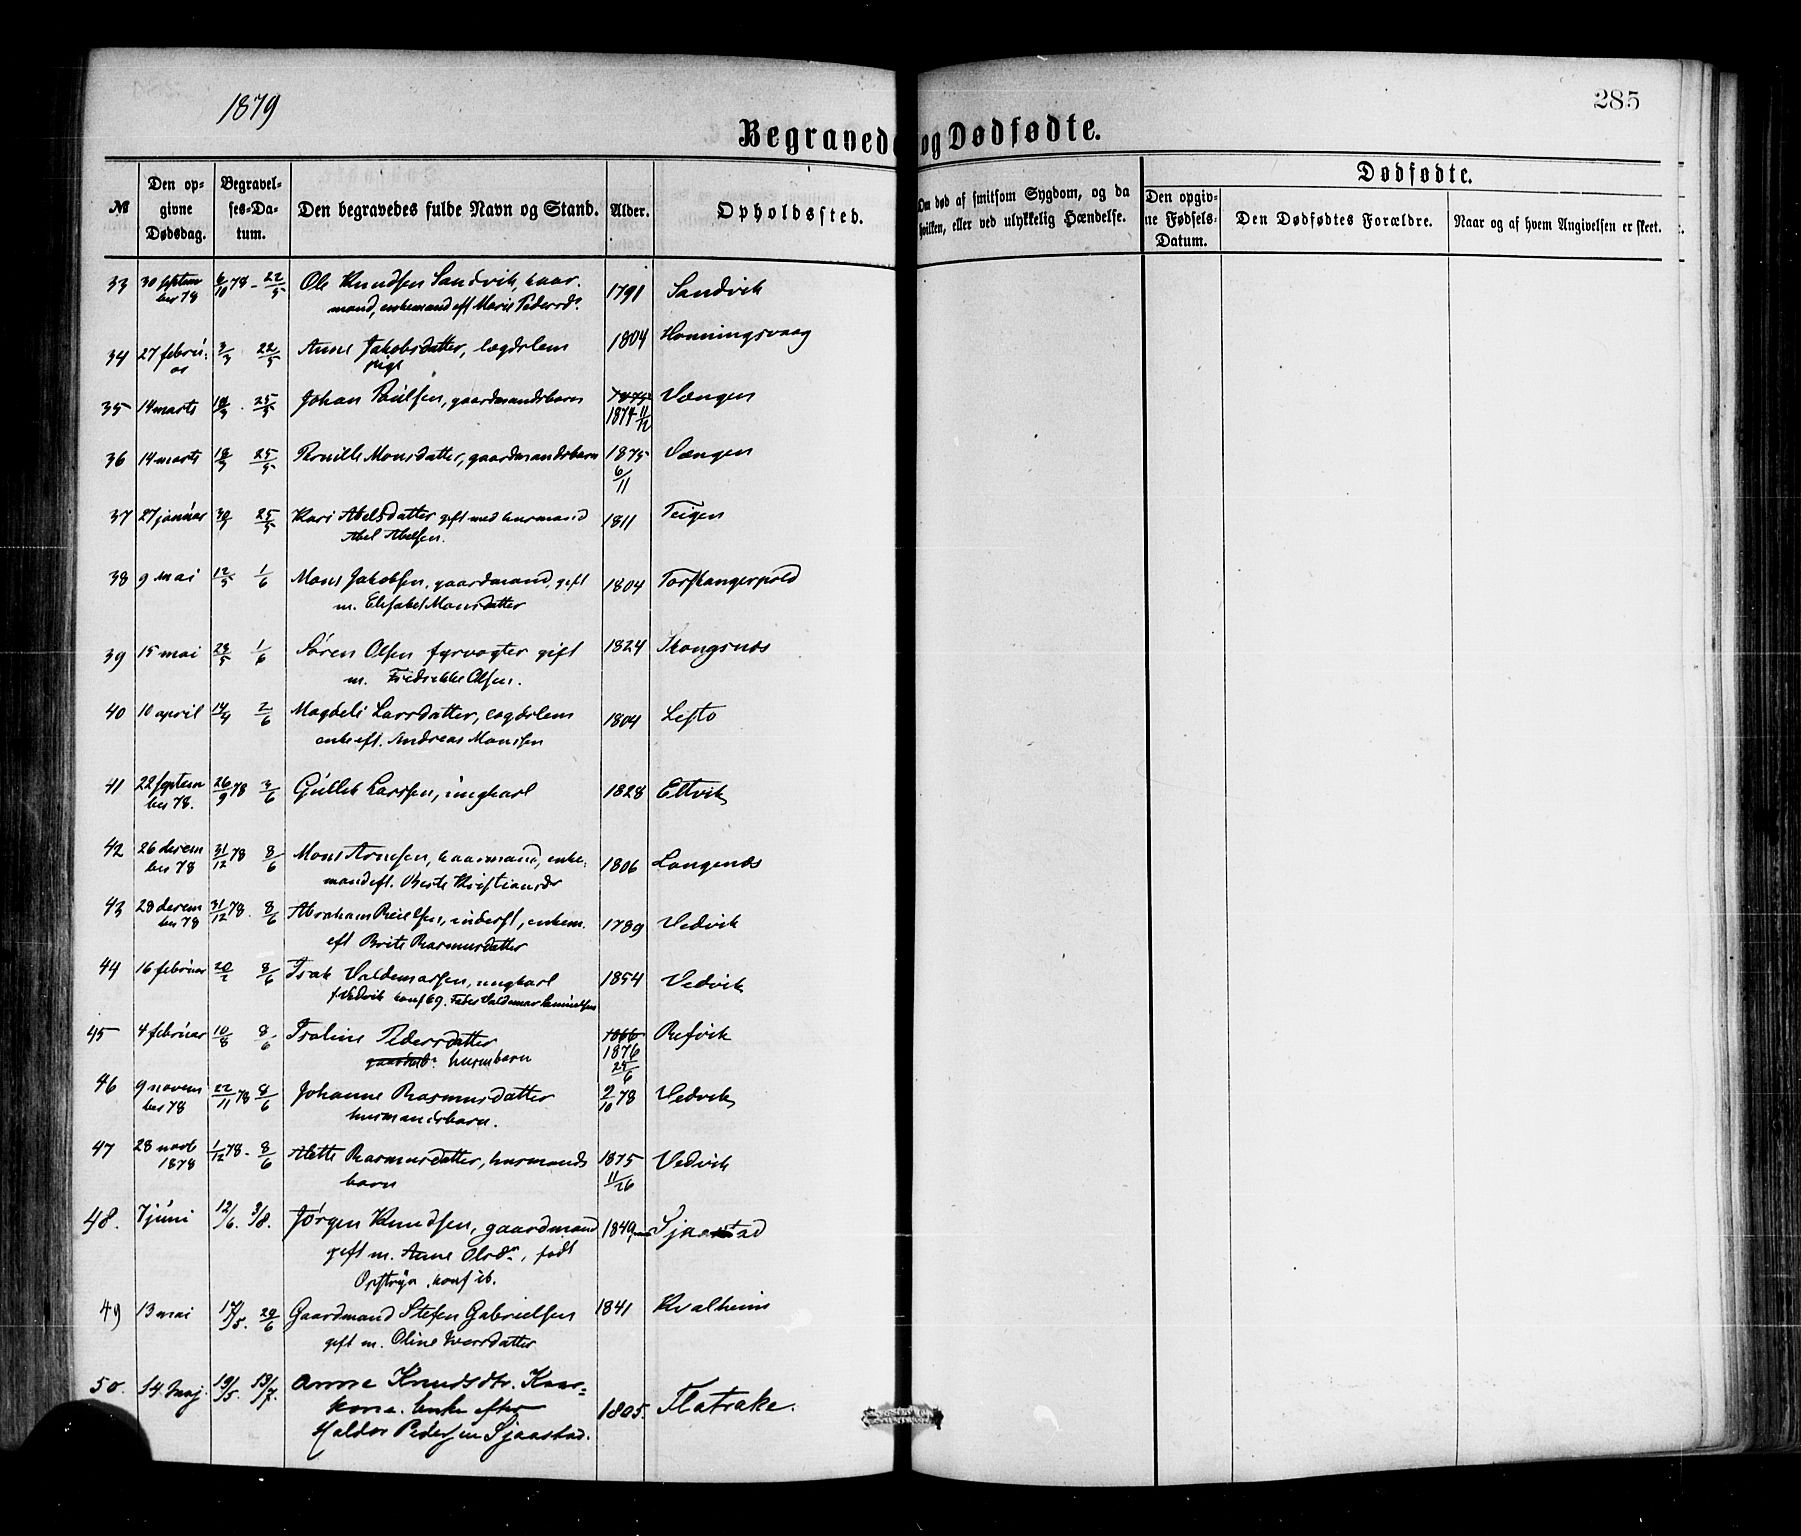 1879
285
Begravede og Dødfødte.
№ Den opgivne Dødsdag. Begravelses-Datum. Den begravedes fulde Navn og Stand. Alder. Opholdssted. Om død af smitsom Sygdom, og da hvilken, eller ved ulykkelig Hændelse. Dødfødte.
Den opgivne Fødsels-Datum. Den Dødfødtes Forældre. Naar og af hvem Angivelsen er skeet.
33 30 septem 6/10 78 - 22/5 Ole Knudsen Sandvik, kaar 1791 Sandvik
ber 78 mand, enkemand eft Marie Pedersd.
34 27 febru 3/3 22/5 Anne Jakobsdatter, lægdslem 1804 Honningsvaag
ar pige
35 14 marts 18/3 . 25/5 Johan Paulsen, gaardmandsbarn Vængen
1874 11/12
36 14 marts 18/3 25/5 Pernille Monsdatter, gaardmandsbarn 1875 Vængen
6/11
37 27 januar 30/1 25/5 Kari Abelsdatter gift med husmand 1811 Teigen
Abel Abelsen.
38 9 mai 12/5 1/6 Mons Jakobsen, gaardmand, gift 1804 Torskangerpold
m. Elisabet Monsdatter
39 15 mai 23/5 1/6 Søren Olsen fyrvogter gift 1824 Skongsnæs
m. Fredrikke Olsen.
40 10 april 14/4 2/6 Magdeli Larsdatter, lægdslem 1804 Lesto
enke eft. Andreas Monsen
41 22 septem 26/9 78 3/6 Gullek Larssen, ungkarl 1828 Eltvik
ber 78.
42 26 decem 31/12 78 8/6 Mons Arnesen, kaarmand, enke- 1806 Langenæs
ber 78 mand eft. Berte Kristiansdr
43 28 decem 31/12 78. 8/6 Abraham Reielsen, inderst, enkem. 1789 Vedvik
ber 78 eft Brite Rasmusdatter
44 16 februar 20/2 8/6 Isak Valdemarsen, ungkarl 1854 Vedvik
f Vedvik konf 69. Fader Valdemar
45 4 februar 10/8 8/6 Isaline Pedersdatter 1866 Refvik
husmbarn 1876
25/6
46 9 novem 22/11 78 8/6 Johanne Rasmusdatter 2/10 78 Vedvik
ber 78 husmandsbarn.
47 28 novb 1/12 78. 8/6 Alette Rasmusdatter, husmands 1875 Vedvik
1878 barn 11/26
48. 7 juni 12/6. 3/8. Jørgen Knudsen, gaardmand 1849 Sjaastad
gift m. Anne Olsdr, født
Opstryn, konf ib.
49 13 mai 17/5. 29/6 Gaardmand Stefen Gabrielsen 1841 Kvalheim
gift m. Oline Iversdatter
50. 14 Maj. 19/5. 13/7. Anne Knudsdtr. Kaar-
kone. Enke efter 1805. Flatrake.
Haldor Pedersen Sjaastad.